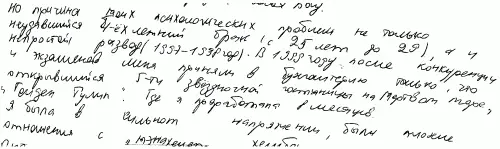 Но причина моих психологических проблем не только
неудавшийся 4-ёх летний брак (с 25 лет до 29), а и
непростой развод (1997-1998 год). В 1999 году после конкуренции
и экзаменов меня приняли в бухгалтерию только, что
открывшийся 5-ти звёздочной гостиницы на Мёртвом море,
" Голден Тулип" где я проработала 8 месяцев
Я была в сильном напряжении, были плохие
отношения с